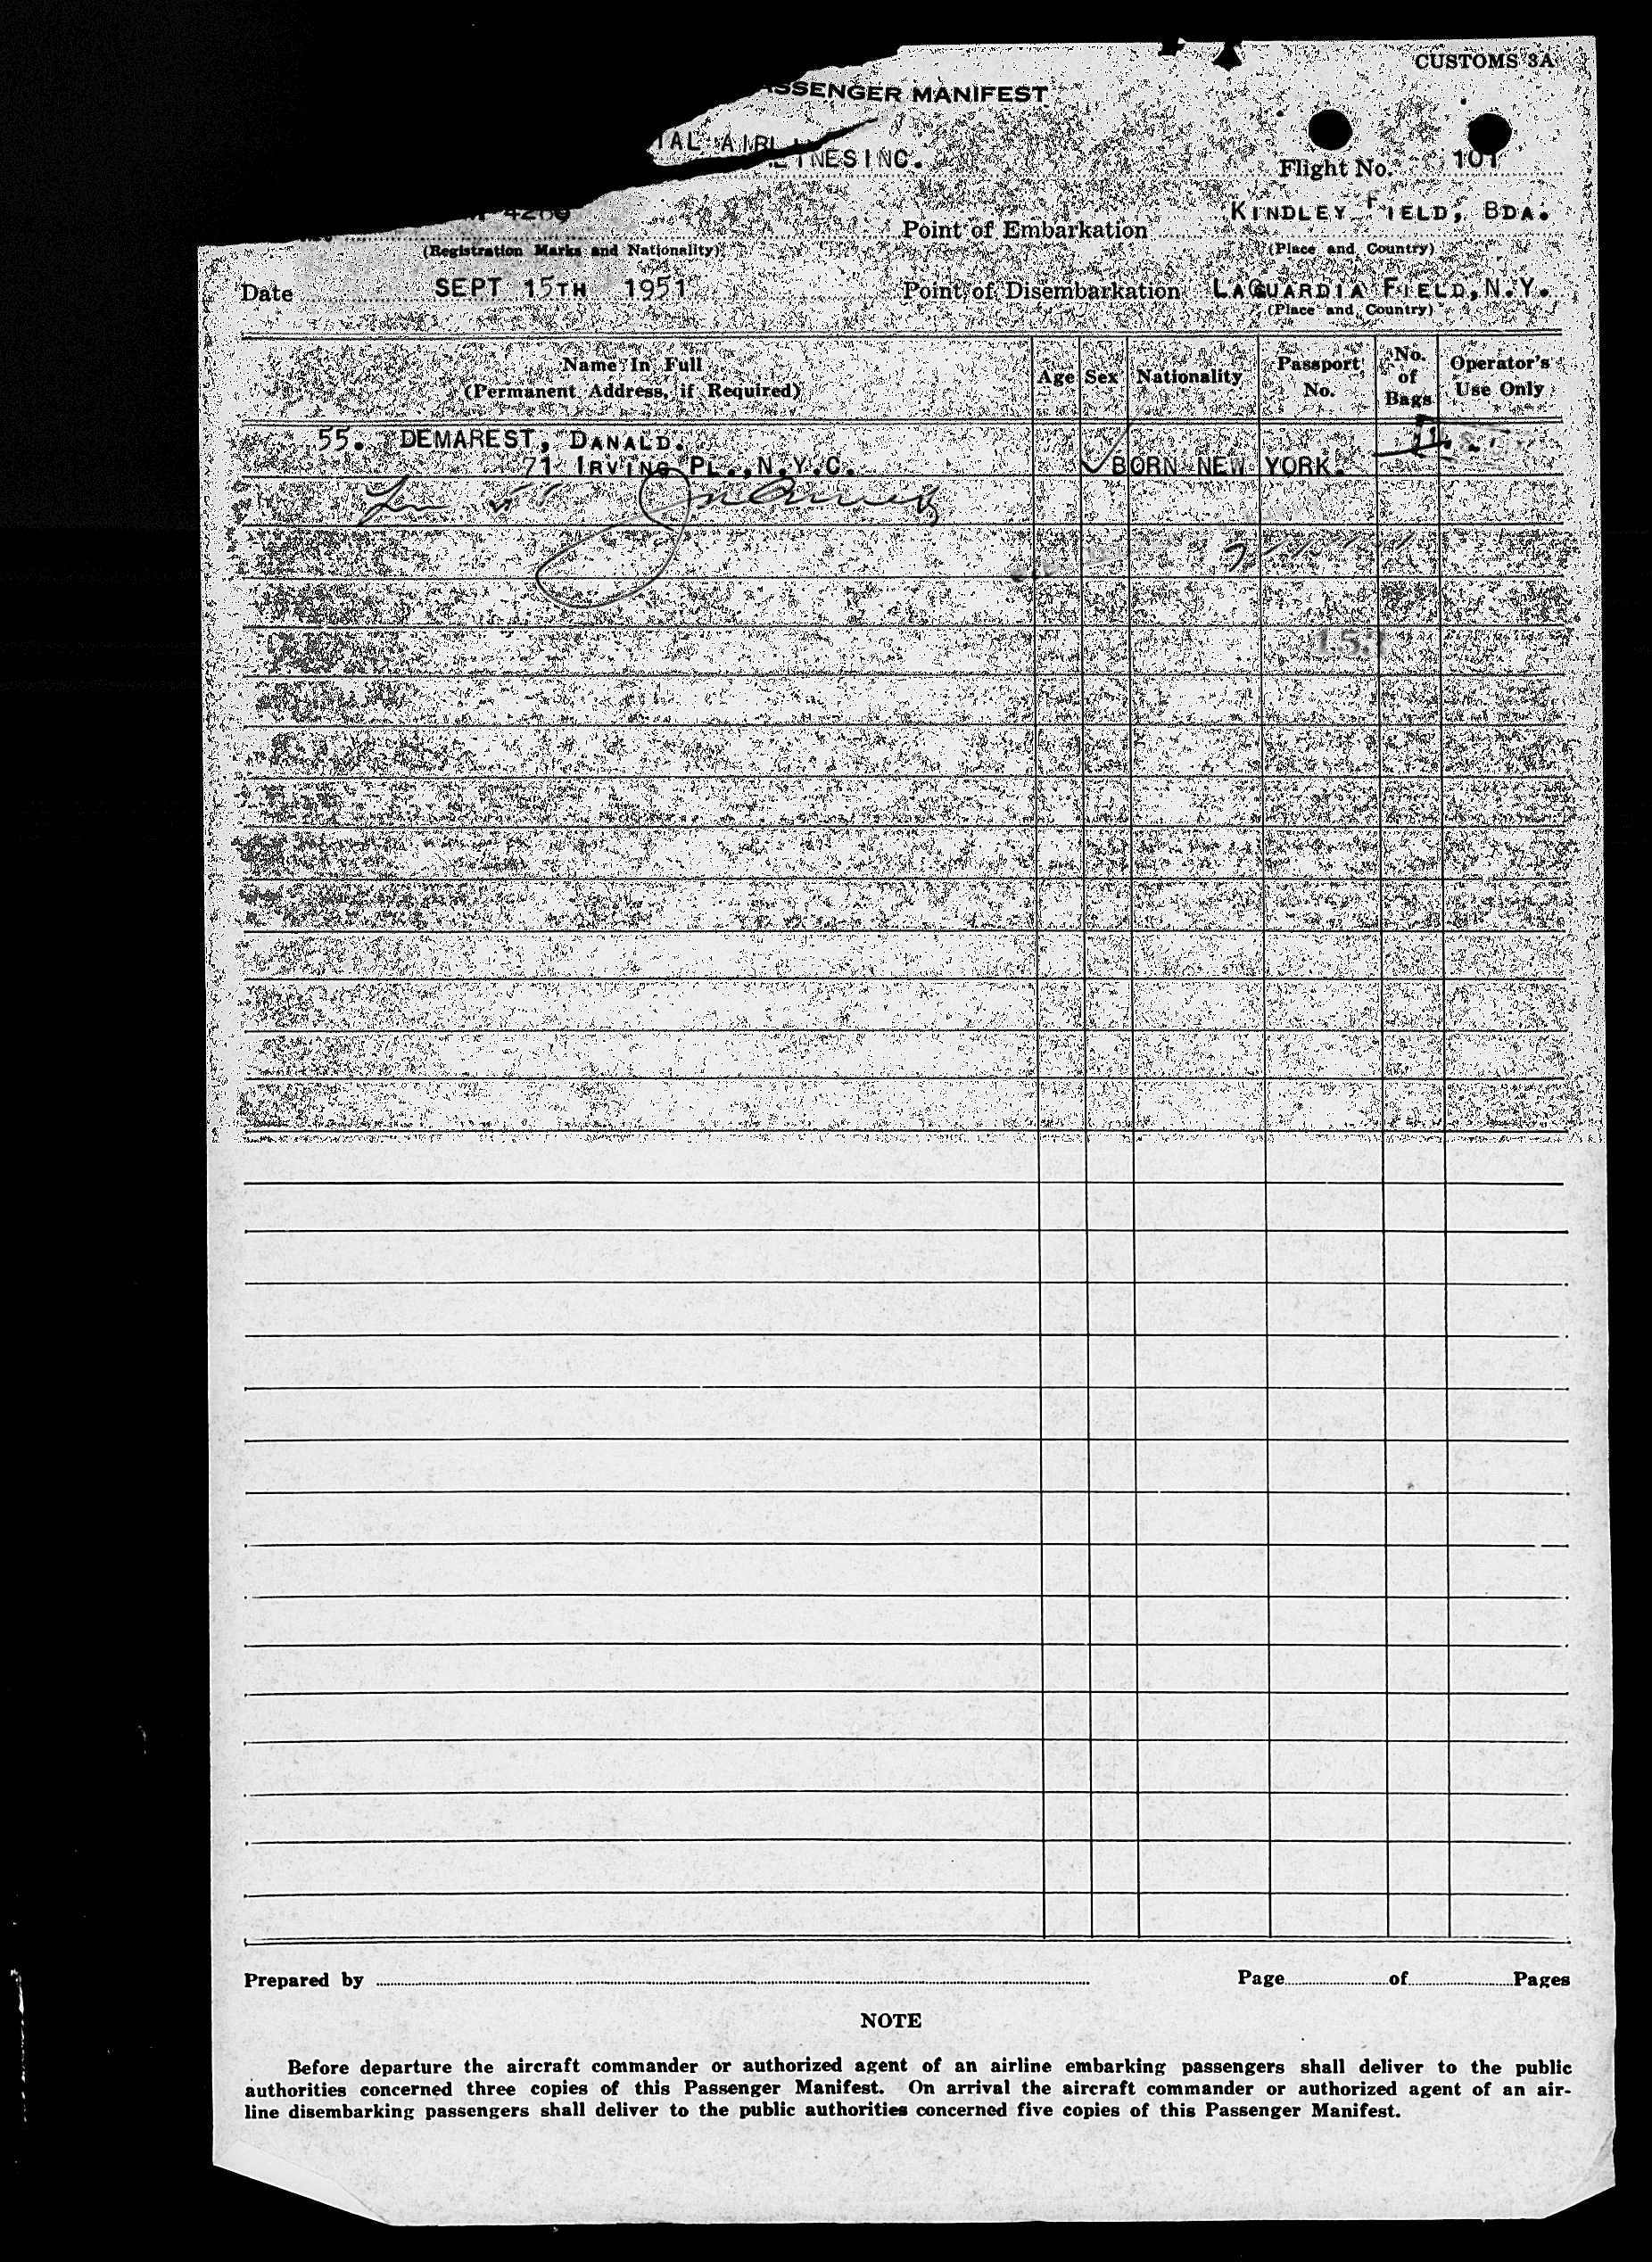 CUSTOMS 3A
SSENGER MANIFEST
IAL AIRLINES INC.
Flight No. 101
4269
Point of Embarkation KINDLEY FIELD, BDA.
(Registration Marks and Nationality)
(Place and Country)
Date SEPT 15TH 1951
Point of Disembarkation LAGUARDIA FIELD, N.Y.
(Place and Country)
Name In Full
(Permanent Address, if Required)
Age Sex Nationality Passport No. No. of Bags Operator's Use Only
55. DEMAREST, DANALD.
71 IRVING PL., N.Y.C. BORN NEW YORK.
Prepared by
Page of Pages
NOTE
Before departure the aircraft commander or authorized agent of an airline embarking passengers shall deliver to the public
authorities concerned three copies of this Passenger Manifest. On arrival the aircraft commander or authorized agent of an air-
line disembarking passengers shall deliver to the public authorities concerned five copies of this Passenger Manifest.